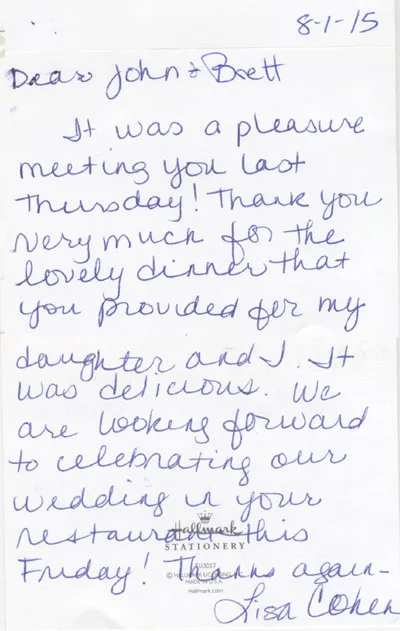 8-1-15
Dear John & Brett
It was a pleasure
meeting you last
Thursday! Thank you
very much for the
lovely dinner that
you provided for my
daughter and I. It
was delicious. We
are looking forward
to celebrating our
wedding in your
restaurant this
Hallmark
STATIONERY
Friday! Thanks again-
© HALLMARK LICENSING
MADE IN U.S.A.
Hallmark.com
Lisa Cohen